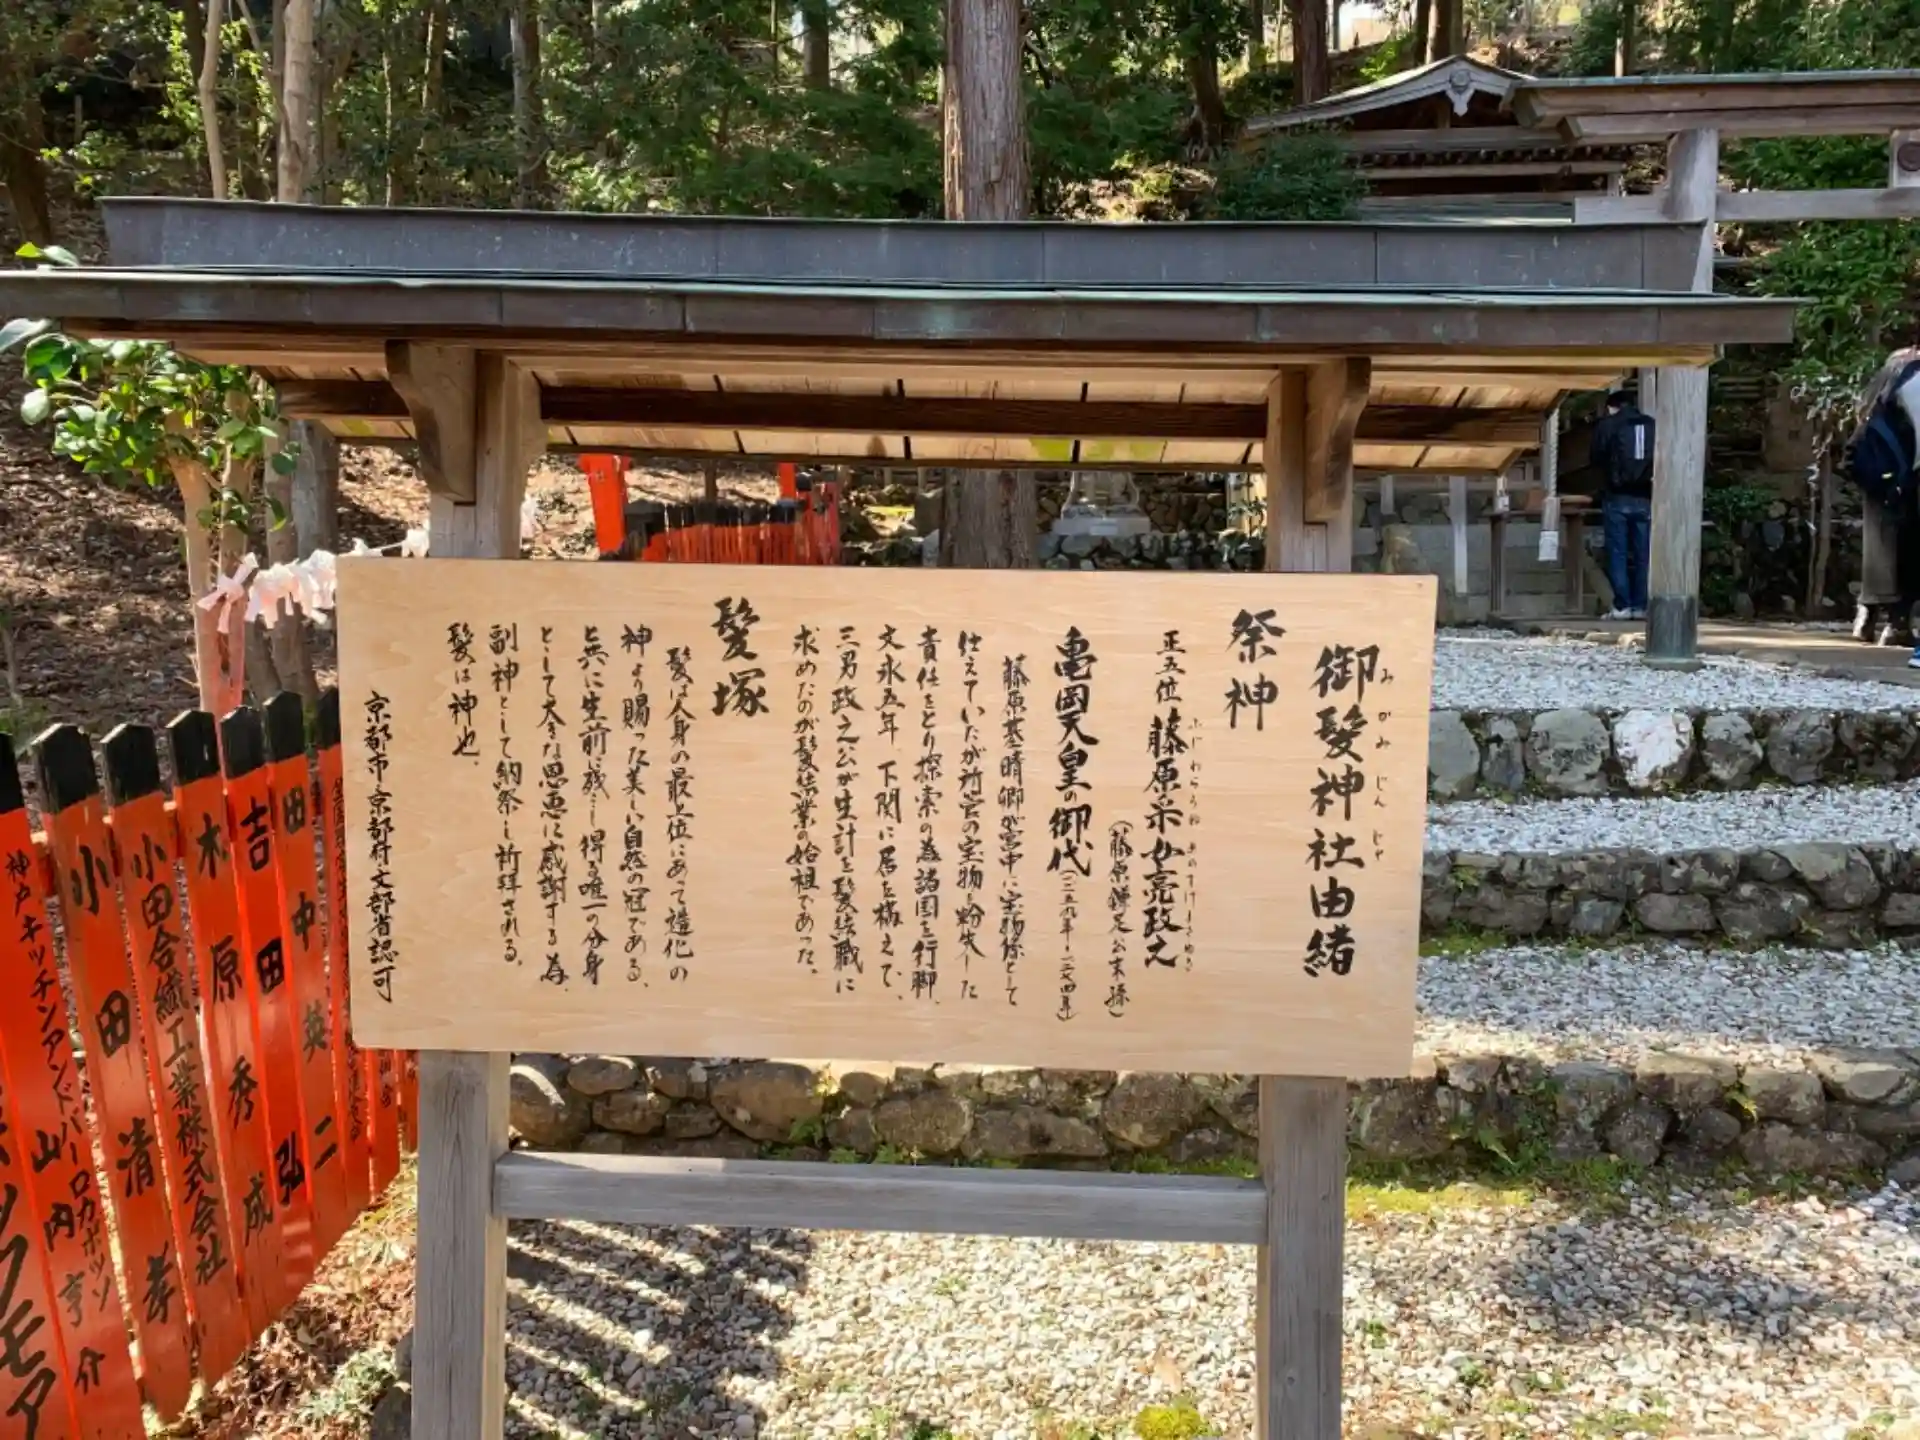 御髪神社由緒
みかみじんじゃ
祭神
正五位 藤原采女亮政之
ふじわらうねめのすけまさゆき
(藤原鎌足公末孫)
亀岡天皇の御代(一二五九年~一二七四年)
藤原基晴卿が宮中に宝物係として
仕えていたが所管の宝物を紛失した
責任をとり探索の為諸国を行脚、
文永五年 下関に居を構えて、
三男政之公が生計を髪結職に
求めたのが髪結業の始祖であった。
髪塚
髪は人身の最上位にあって造化の
神より賜った美しい自然の冠である、
と共に生前に残し得る唯一の分身
として大きな恩恵に感謝する為、
副神として納祭し祈拝される。
髪は神也。
京都市・京都府・文部省認可
田中英二
吉田弘
木原秀成
小田合繊工業株式会社
小田清孝
神戸キッチンアンドバーロカボッソ
山内亨介